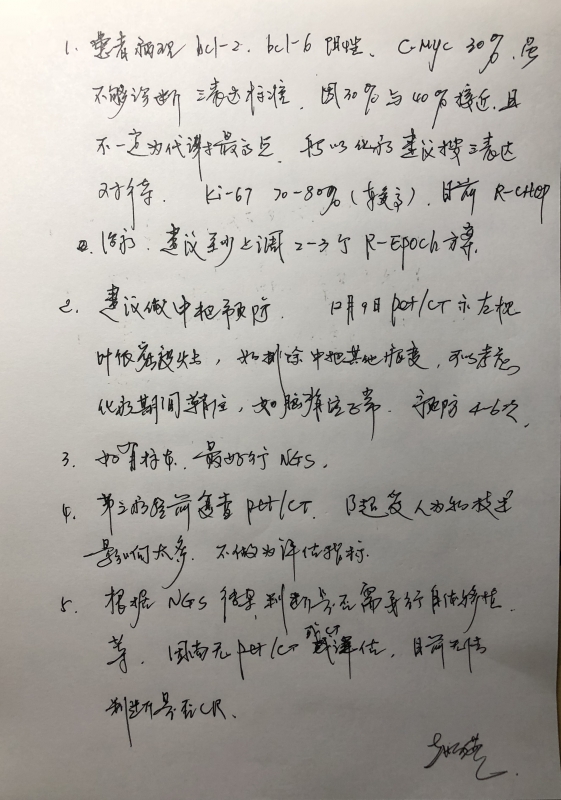 1. 患者病理 bcl-2. bcl-6 阴性、C-Myc 30%, 虽
不够诊断三表达标准, 因30%与40%接近, 且
不一定为代谢最高点, 所以化疗建议按三表达
对待. Ki-67 70-80%(较高), 目前 R-CHOP
治疗. 建议至少上调 2-3个 R-EPOCH 方案.
2. 建议做中枢预防. 12月9日 pet/CT 示左枕
叶低密度灶, 如排除中枢其他病变, 可以考虑
化疗期间鞘注, 如脑脊液正常. 预防 4-6次.
3. 如有标本, 最好行 NGS.
4. 第三疗程前复查 pet/CT. B超受人为和技术
影响太多. 不做为评估指标.
5. 根据 NGS 结果, 判断是否需要行自体移植
等. 因尚无 pet/CT 或CT 评估, 目前无法
判断是否CR.